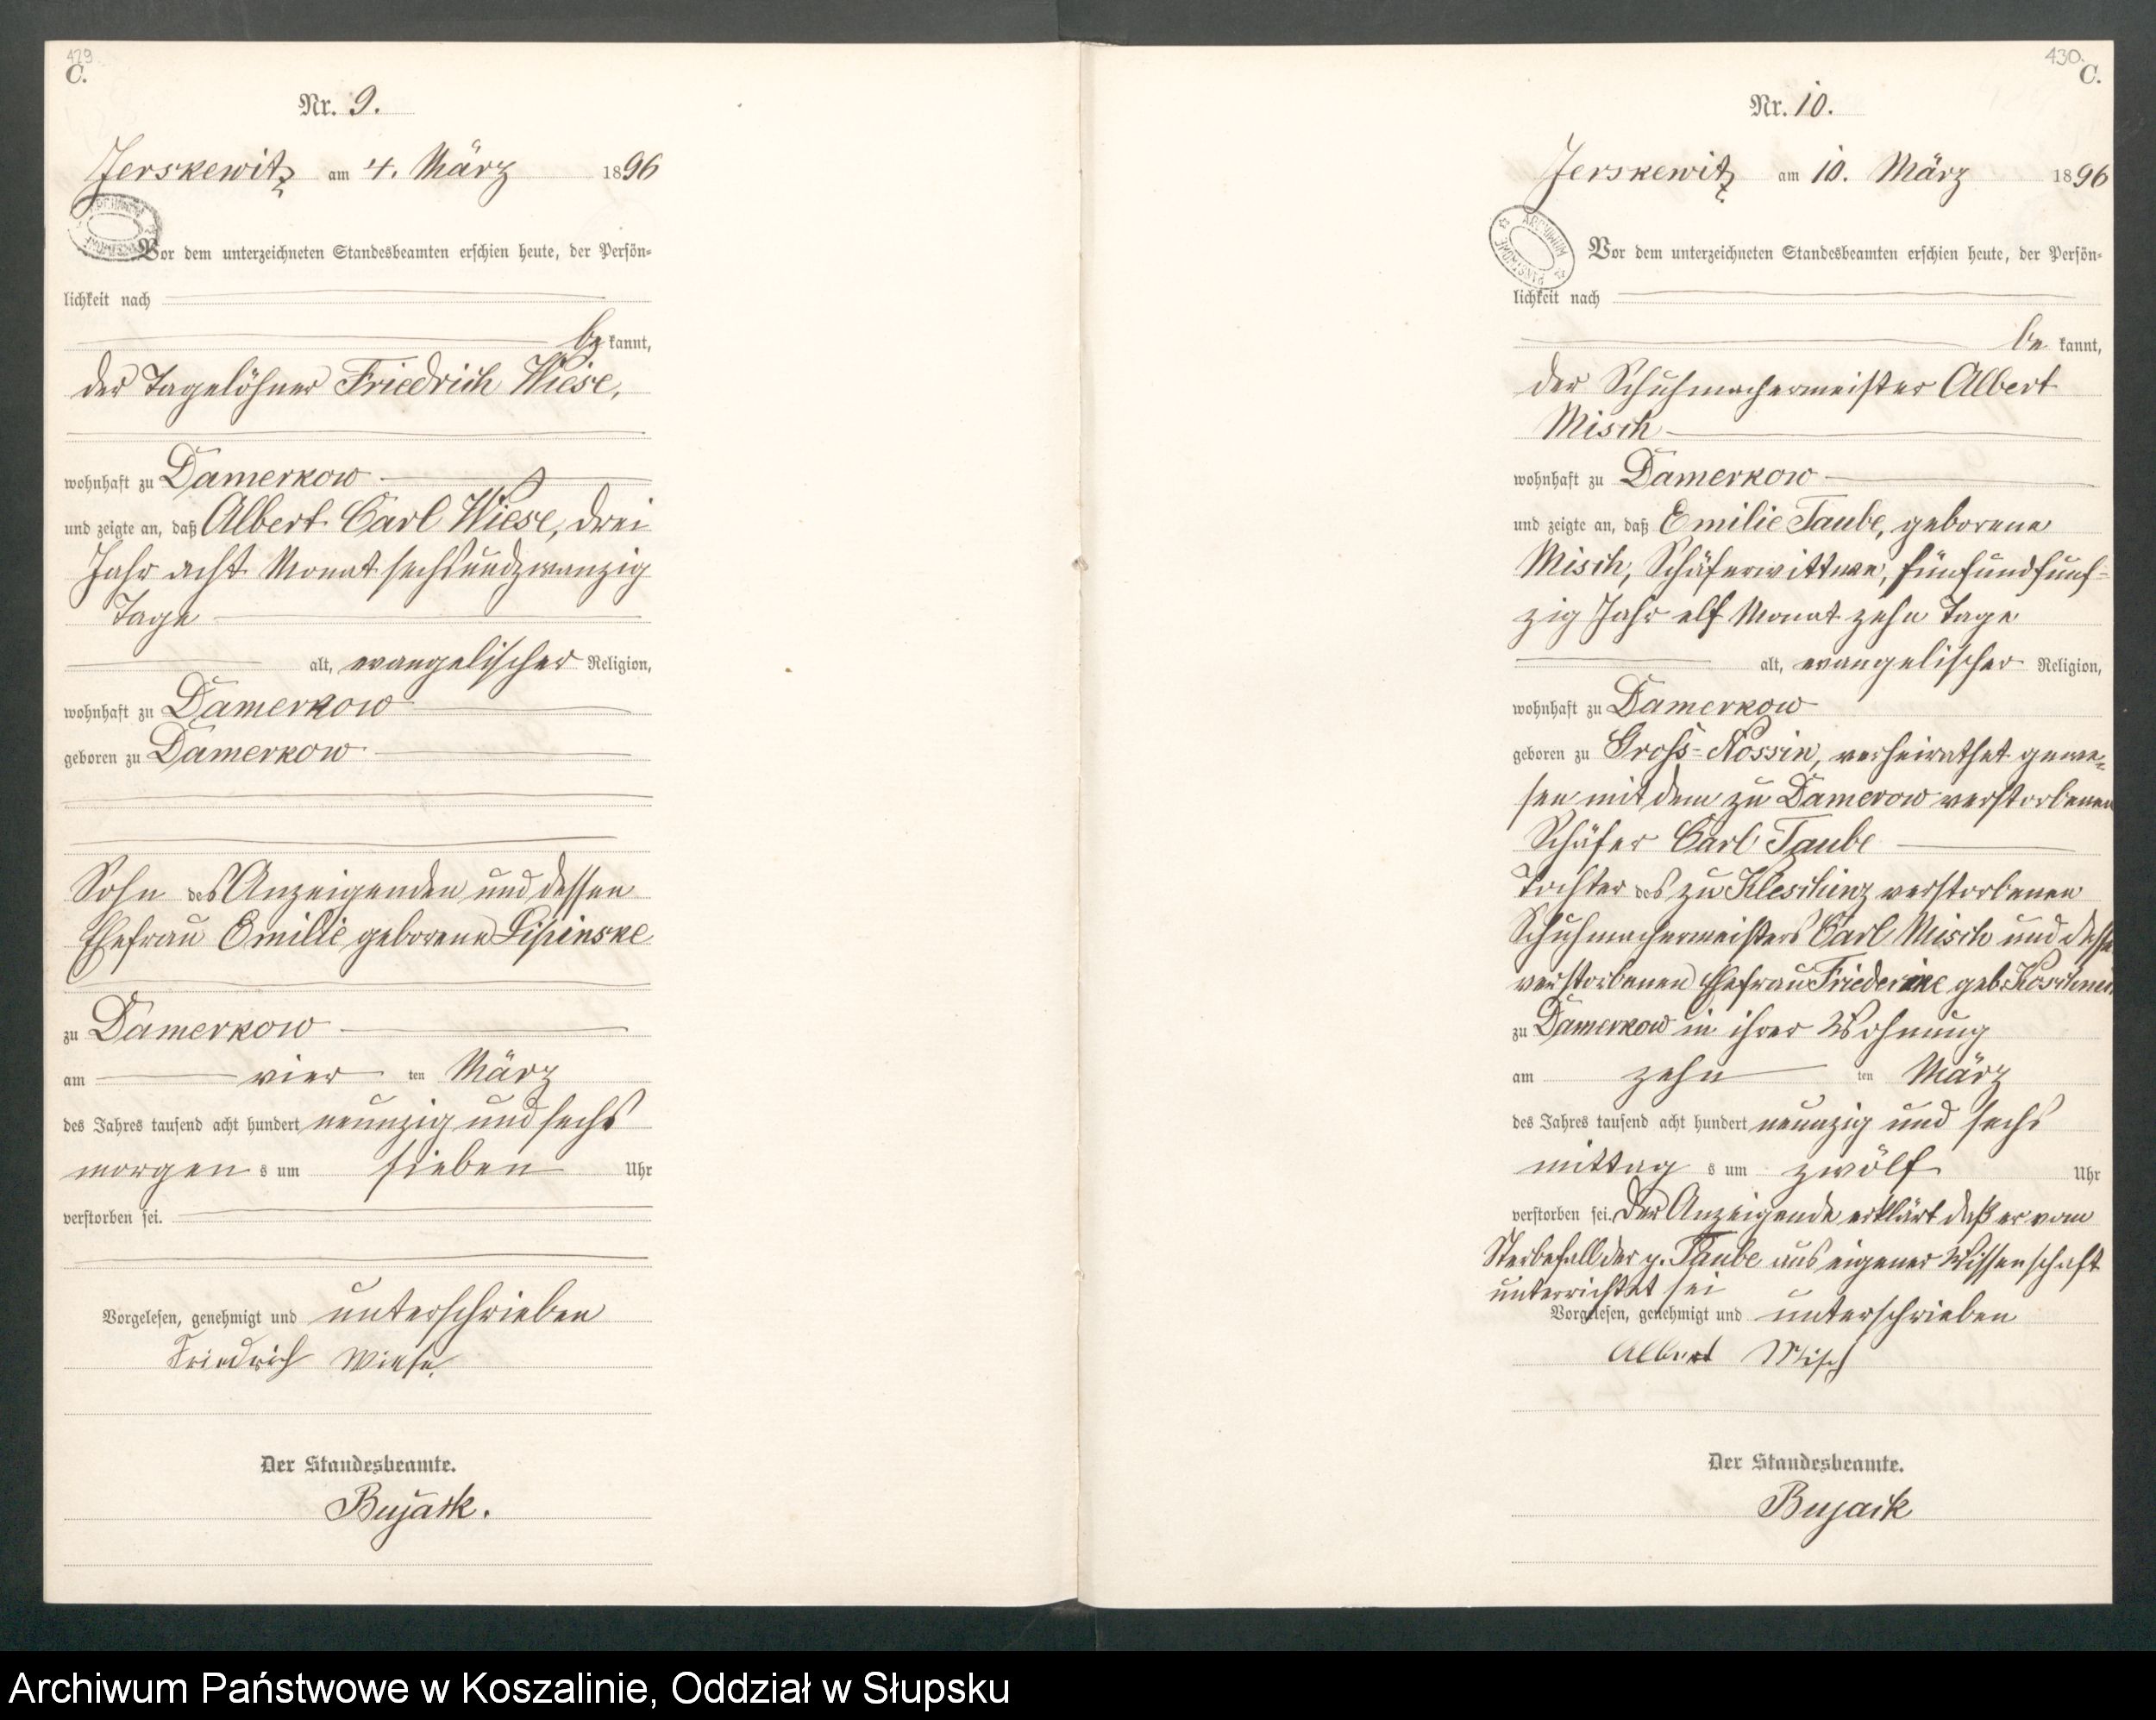 429.
C.
Nr. 9.
Jerskewitz am 4. März 1896
Vor dem unterzeichneten Standesbeamten erschien heute, der Persön-
lichkeit nach
be kannt,
der Tagelöhner Friedrich Wiese,
wohnhaft zu Damerkow
und zeigte an, daß Albert Carl Wiese, drei
Jahr acht Monat sechsundzwanzig
Tage
alt, evangelischer Religion,
wohnhaft zu Damerkow
geboren zu Damerkow
Sohn des Anzeigenden und dessen
Ehefrau Emilie geborene Lipinske
zu Damerkow
am vier ten März
des Jahres tausend acht hundert neunzig und sechs
morgen s um sieben Uhr
verstorben sei.
Vorgelesen, genehmigt und unterschrieben
Friedrich Wiese.
Der Standesbeamte.
Bujack.
430.
C.
Nr. 10.
Jerskewitz am 10. März 1896
ARCHIWUM PAŃSTWOWE
Vor dem unterzeichneten Standesbeamten erschien heute, der Persön-
lichkeit nach
be kannt,
der Schuhmachermeister Albert
Misch
wohnhaft zu Damerkow
und zeigte an, daß Emilie Taube, geborene
Misch, Schäferwittwe, fünfundfunf-
zig Jahr elf Monat zehn Tage
alt, evangelischer Religion,
wohnhaft zu Damerkow
geboren zu Groß-Nossin, verheirathet gewe-
sen mit dem zu Damerow verstorbenen
Schäfer Carl Taube
Tochter des zu Kleschinz verstorbenen
Schuhmachermeisters Carl Misch und
verstorbenen Ehefrau Friederike geb.
zu Damerkow in ihrer Wohnung
am zehn ten März
des Jahres tausend acht hundert neunzig und sechs
mittag s um zwölf Uhr
verstorben sei. Der Anzeigende erklärt daß er vom
Sterbefall der p. Taube aus eigener Wissenschaft
unterrichtet sei
Vorgelesen, genehmigt und unterschrieben
Albert Misch
Der Standesbeamte.
Bujack
Archiwum Państwowe w Koszalinie, Oddział w Słupsku